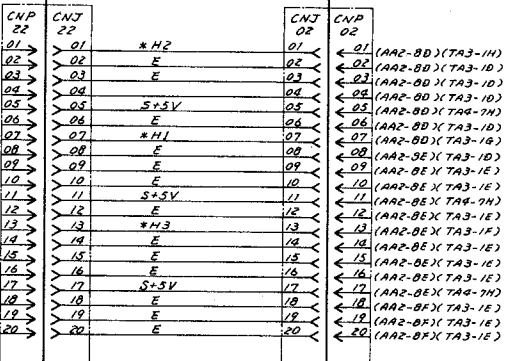 CNP 22 CNJ 22 CNJ 02 CNP 02
01 01 *H2 01 01 (AA2-8D)(TA3-1H)
02 02 E 02 02 (AA2-8D)(TA3-1D)
03 03 E 03 03 (AA2-8D)(TA3-1D)
04 04 04 04 (AA2-8D)(TA3-1D)
05 05 S+5V 05 05 (AA2-8D)(TA4-7H)
06 06 E 06 06 (AA2-8D)(TA3-1D)
07 07 *H1 07 07 (AA2-8D)(TA3-1G)
08 08 E 08 08 (AA2-8E)(TA3-1D)
09 09 E 09 09 (AA2-8E)(TA3-1E)
10 10 E 10 10 (AA2-8E)(TA3-1E)
11 11 S+5V 11 11 (AA2-8E)(TA4-7H)
12 12 E 12 12 (AA2-8E)(TA3-1E)
13 13 *H3 13 13 (AA2-8E)(TA3-1F)
14 14 E 14 14 (AA2-8E)(TA3-1E)
15 15 E 15 15 (AA2-8E)(TA3-1E)
16 16 E 16 16 (AA2-8E)(TA3-1E)
17 17 S+5V 17 17 (AA2-8E)(TA4-7H)
18 18 E 18 18 (AA2-8F)(TA3-1E)
19 19 E 19 19 (AA2-8F)(TA3-1E)
20 20 E 20 20 (AA2-8F)(TA3-1E)